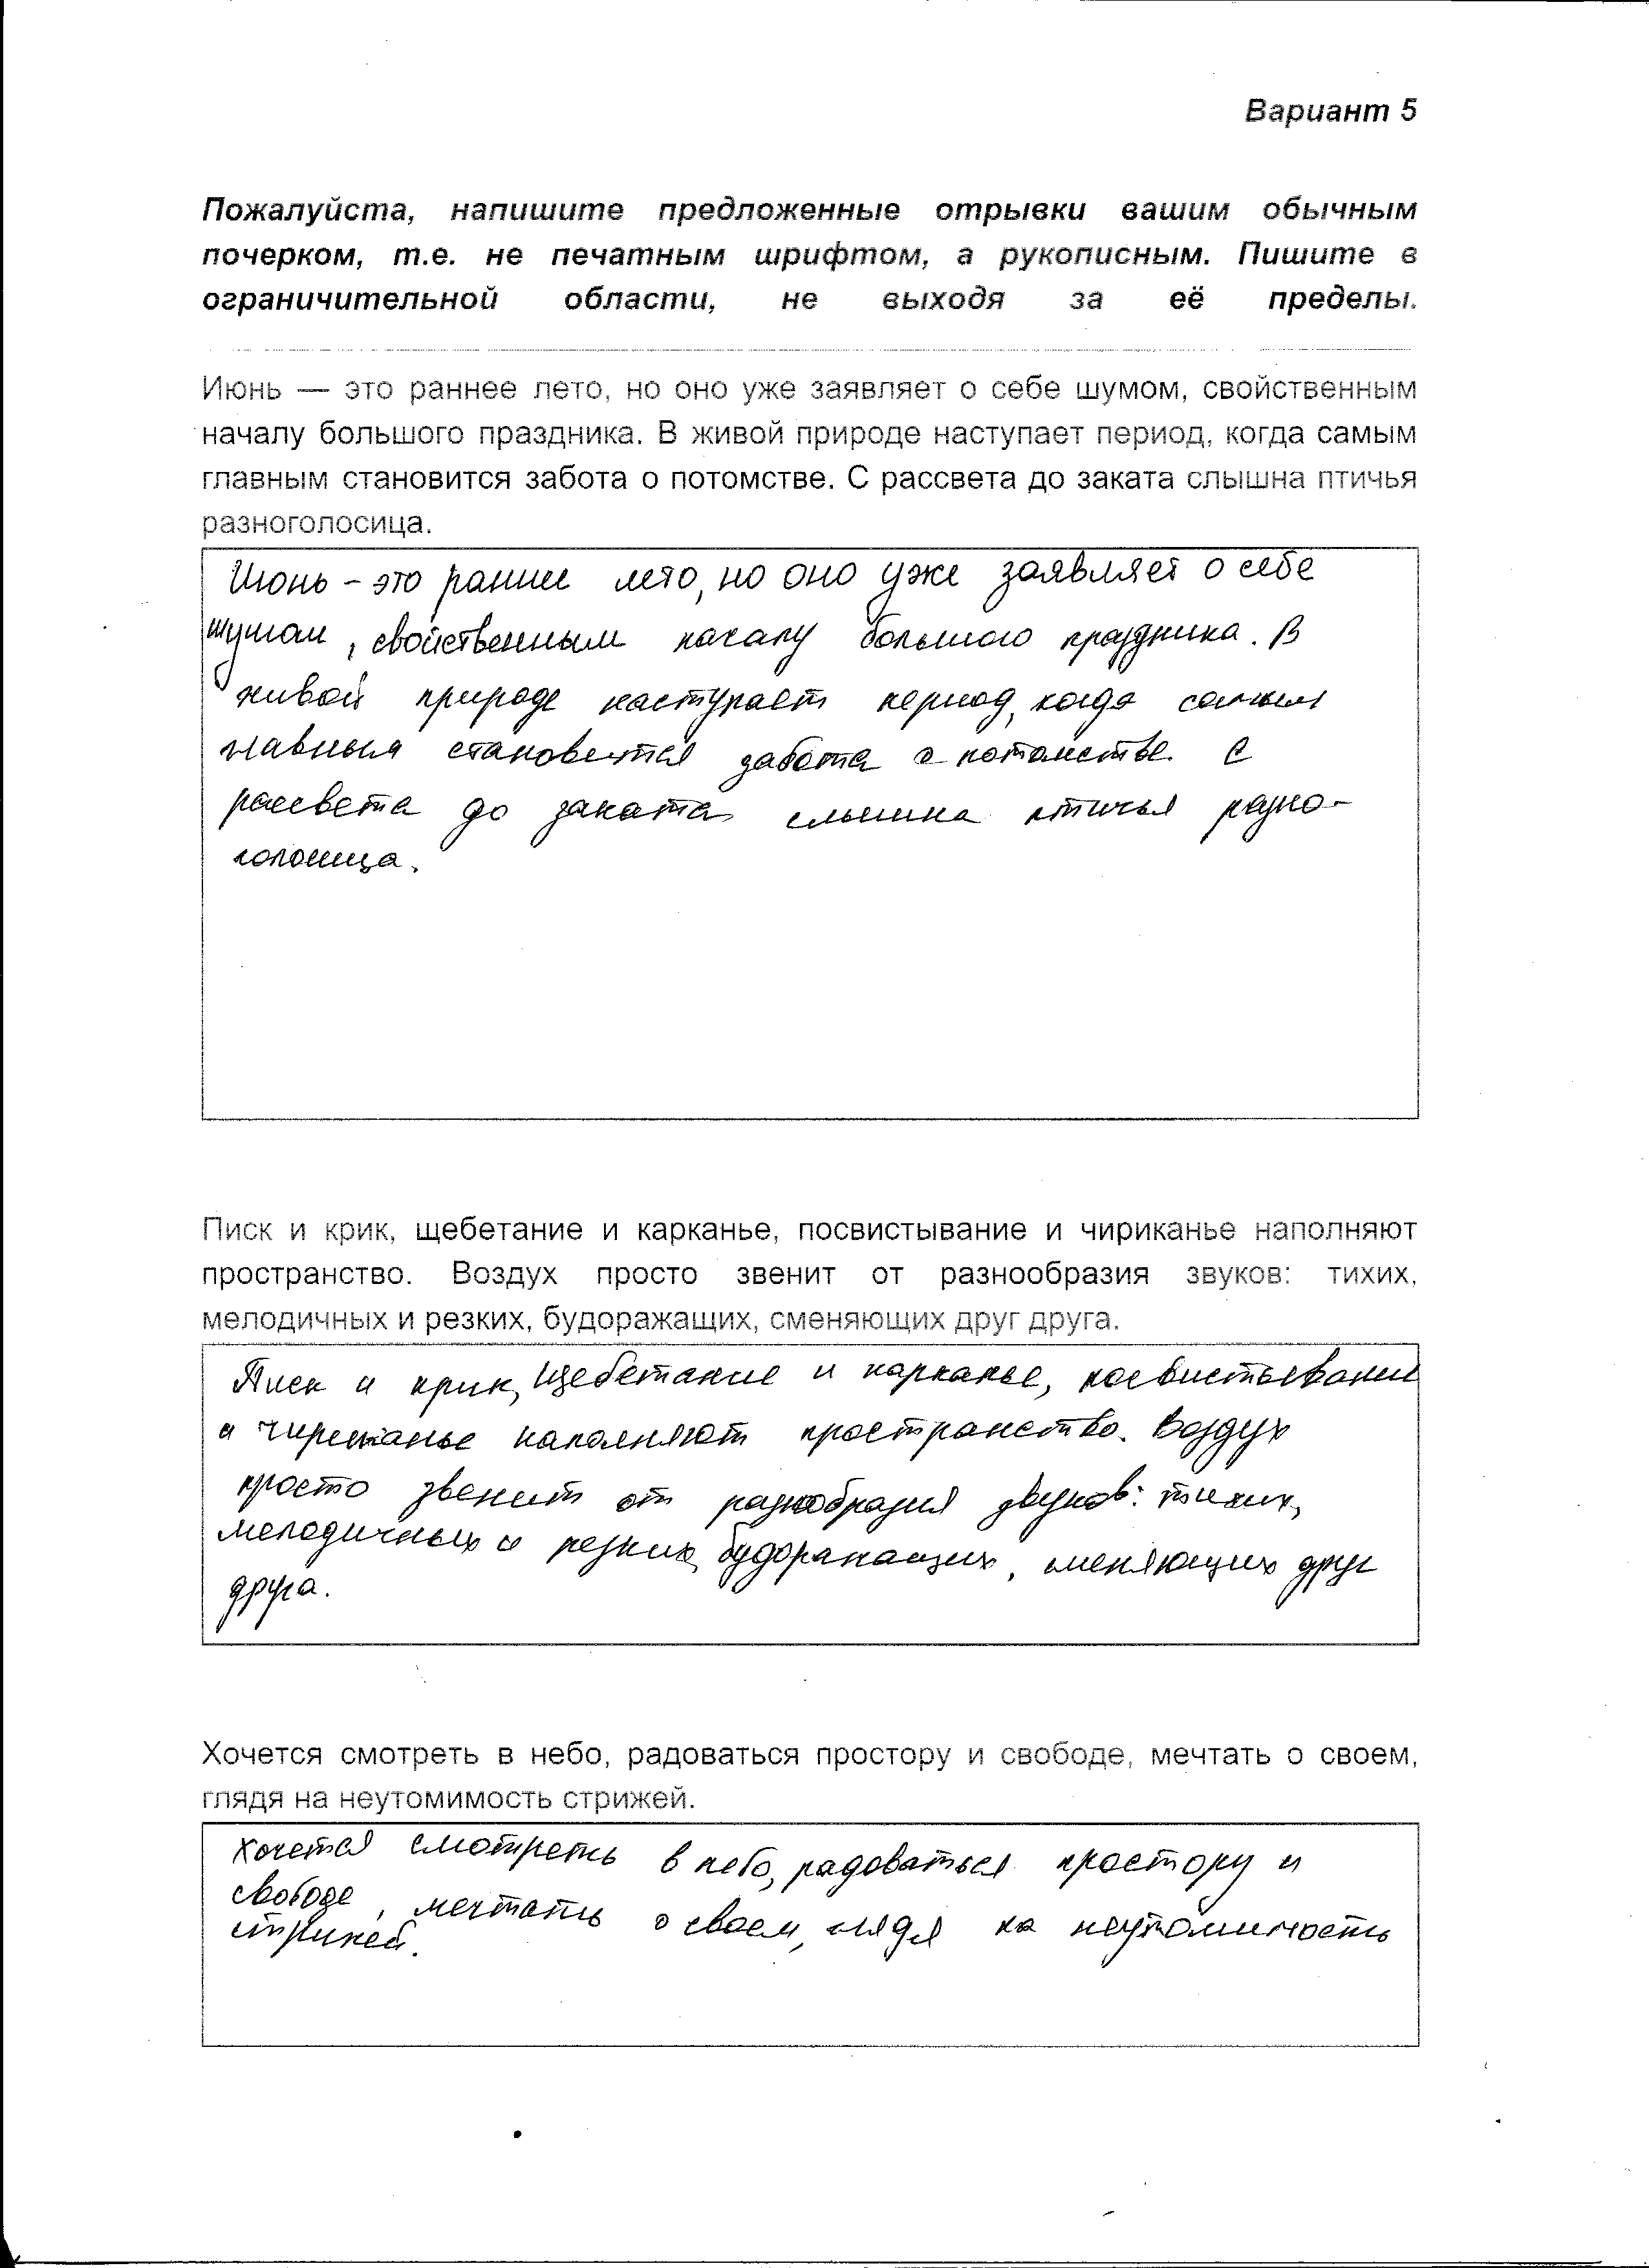 Вариант 5
Пожалуйста, напишите предложенные отрывки вашим обычным
почерком, т.е. не печатным шрифтом, а рукописным. Пишите в
ограничительной области, не выходя за её пределы.
Июнь — это раннее лето, но оно уже заявляет о себе шумом, свойственным
началу большого праздника. В живой природе наступает период, когда самым
главным становится забота о потомстве. С рассвета до заката слышна птичья
разноголосица.
Июнь - это ранние лето, но оно уже заявляет о себе
шумом, свойственным началу большого праздника. В
живой природе наступает период, когда самым
главным становится забота о потомстве. С
рассвета до заката слышна птичья разно-
голосица.
Писк и крик, щебетание и карканье, посвистывание и чириканье наполняют
пространство. Воздух просто звенит от разнообразия звуков: тихих,
мелодичных и резких, будоражащих, сменяющих друг друга.
Писк и крик, щебетание и карканье, посвистывание
и чириканье наполняют пространство. Воздух
просто звенит от разнообразия звуков: тихих,
мелодичных и резких, будоражащих, сменяющих друг
друга.
Хочется смотреть в небо, радоваться простору и свободе, мечтать о своем,
глядя на неутомимость стрижей.
Хочется смотреть в небо, радоваться простору и
свободе, мечтать о своем, глядя на неутомимость
стрижей.